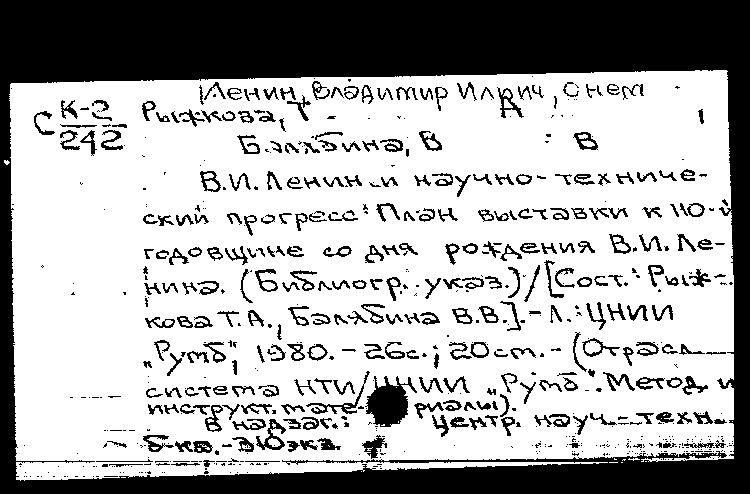 Ленин, Владимир Ильич, о нем
С К-2/242 Рыжкова, Т А
Балябина, В В
В.И. Ленин и научно-техниче-
ский прогресс: План выставки к 110-й
годовщине со дня рождения В.И. Ле-
нина. (Библиогр. указ.)/[Сост.: Рыж-
кова Т.А., Балябина В.В.].- Л.: ЦНИИ
„Румб", 1980. - 26с.; 20см. - (Отрасл.
система НТИ/ЦНИИ „Румб". Метод. и
инструкт. мате- риалы).
В надзаг.: Центр. науч.-техн.
б-ка.